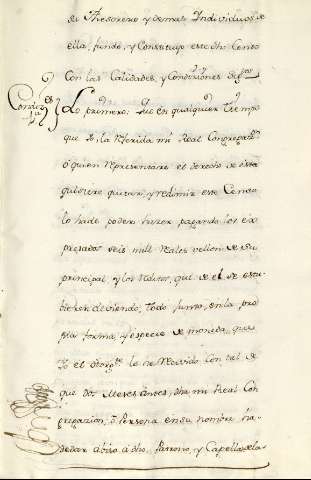 el Thesorero y demas Individuos de
ella, fundo, y Constituyo este dho Censo
Con las Calidades, y Condiciones sigtes
Condiz.es
1a
Lo primero: Que en qualquier tiempo
que Yo, la referida mi Real Congregazn
ó quien representare el derecho de esta
quisiere quitar, y redimir este Censo
lo ha de poder hazer pagando los ex
presados seis mill Reales vellon de su
principal, y los reditos, que de el se estu
bieren deviendo, todo junto, en la pro
pia forma, y especie de moneda, que
Yo el otorgte lo he rezivido con tal de
que dos Meses antes, dha mi Real Con
gregazion, ó Persona en su nombre ha
de dar abiso á dho Patrono, y Capellan